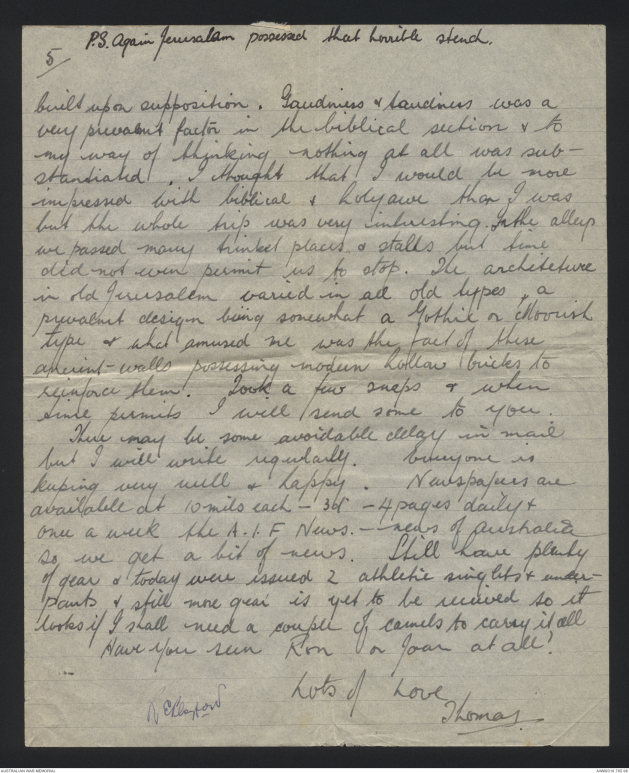 P.S. Again Jerusalam possessed that horrible stench.
5
built upon supposition. Gaudiness & taudiness was a
very prevalent factor in the biblical section & to
my way of thinking nothing at all was sub-
stantiated. I thought that I would be more
impressed with biblical & holy awe than I was
but the whole trip was very interesting. In the alleys
we passed many trinket places & stalls but time
did not even permit us to stop. The architeture
in old Jerusalem varied in all old types, a
prevalent design being somewhat a Gothic or Moorish
type & what amused me was the fact of these
ancient walls possessing modern hollow bricks to
reinforce them. Took a few snaps & when
time permits I will send some to you.
There may be some avoidable delay in mail
but I will write regularly. Everyone is
keeping very well & happy. Newspapers are
available at 10 mils each - 3d - 4 pages daily &
once a week the A.I.F News. - news of Australia
so we get a bit of news. Still have plenty
of gear & today were issued 2 athletic singlets & under-
pants & still more gear is yet to be received so it
looks if I shall need a couple of camels to carry it all
Have you seen Ron or Joan at all?
Lots of Love
Thomas.
AUSTRALIAN WAR MEMORIAL